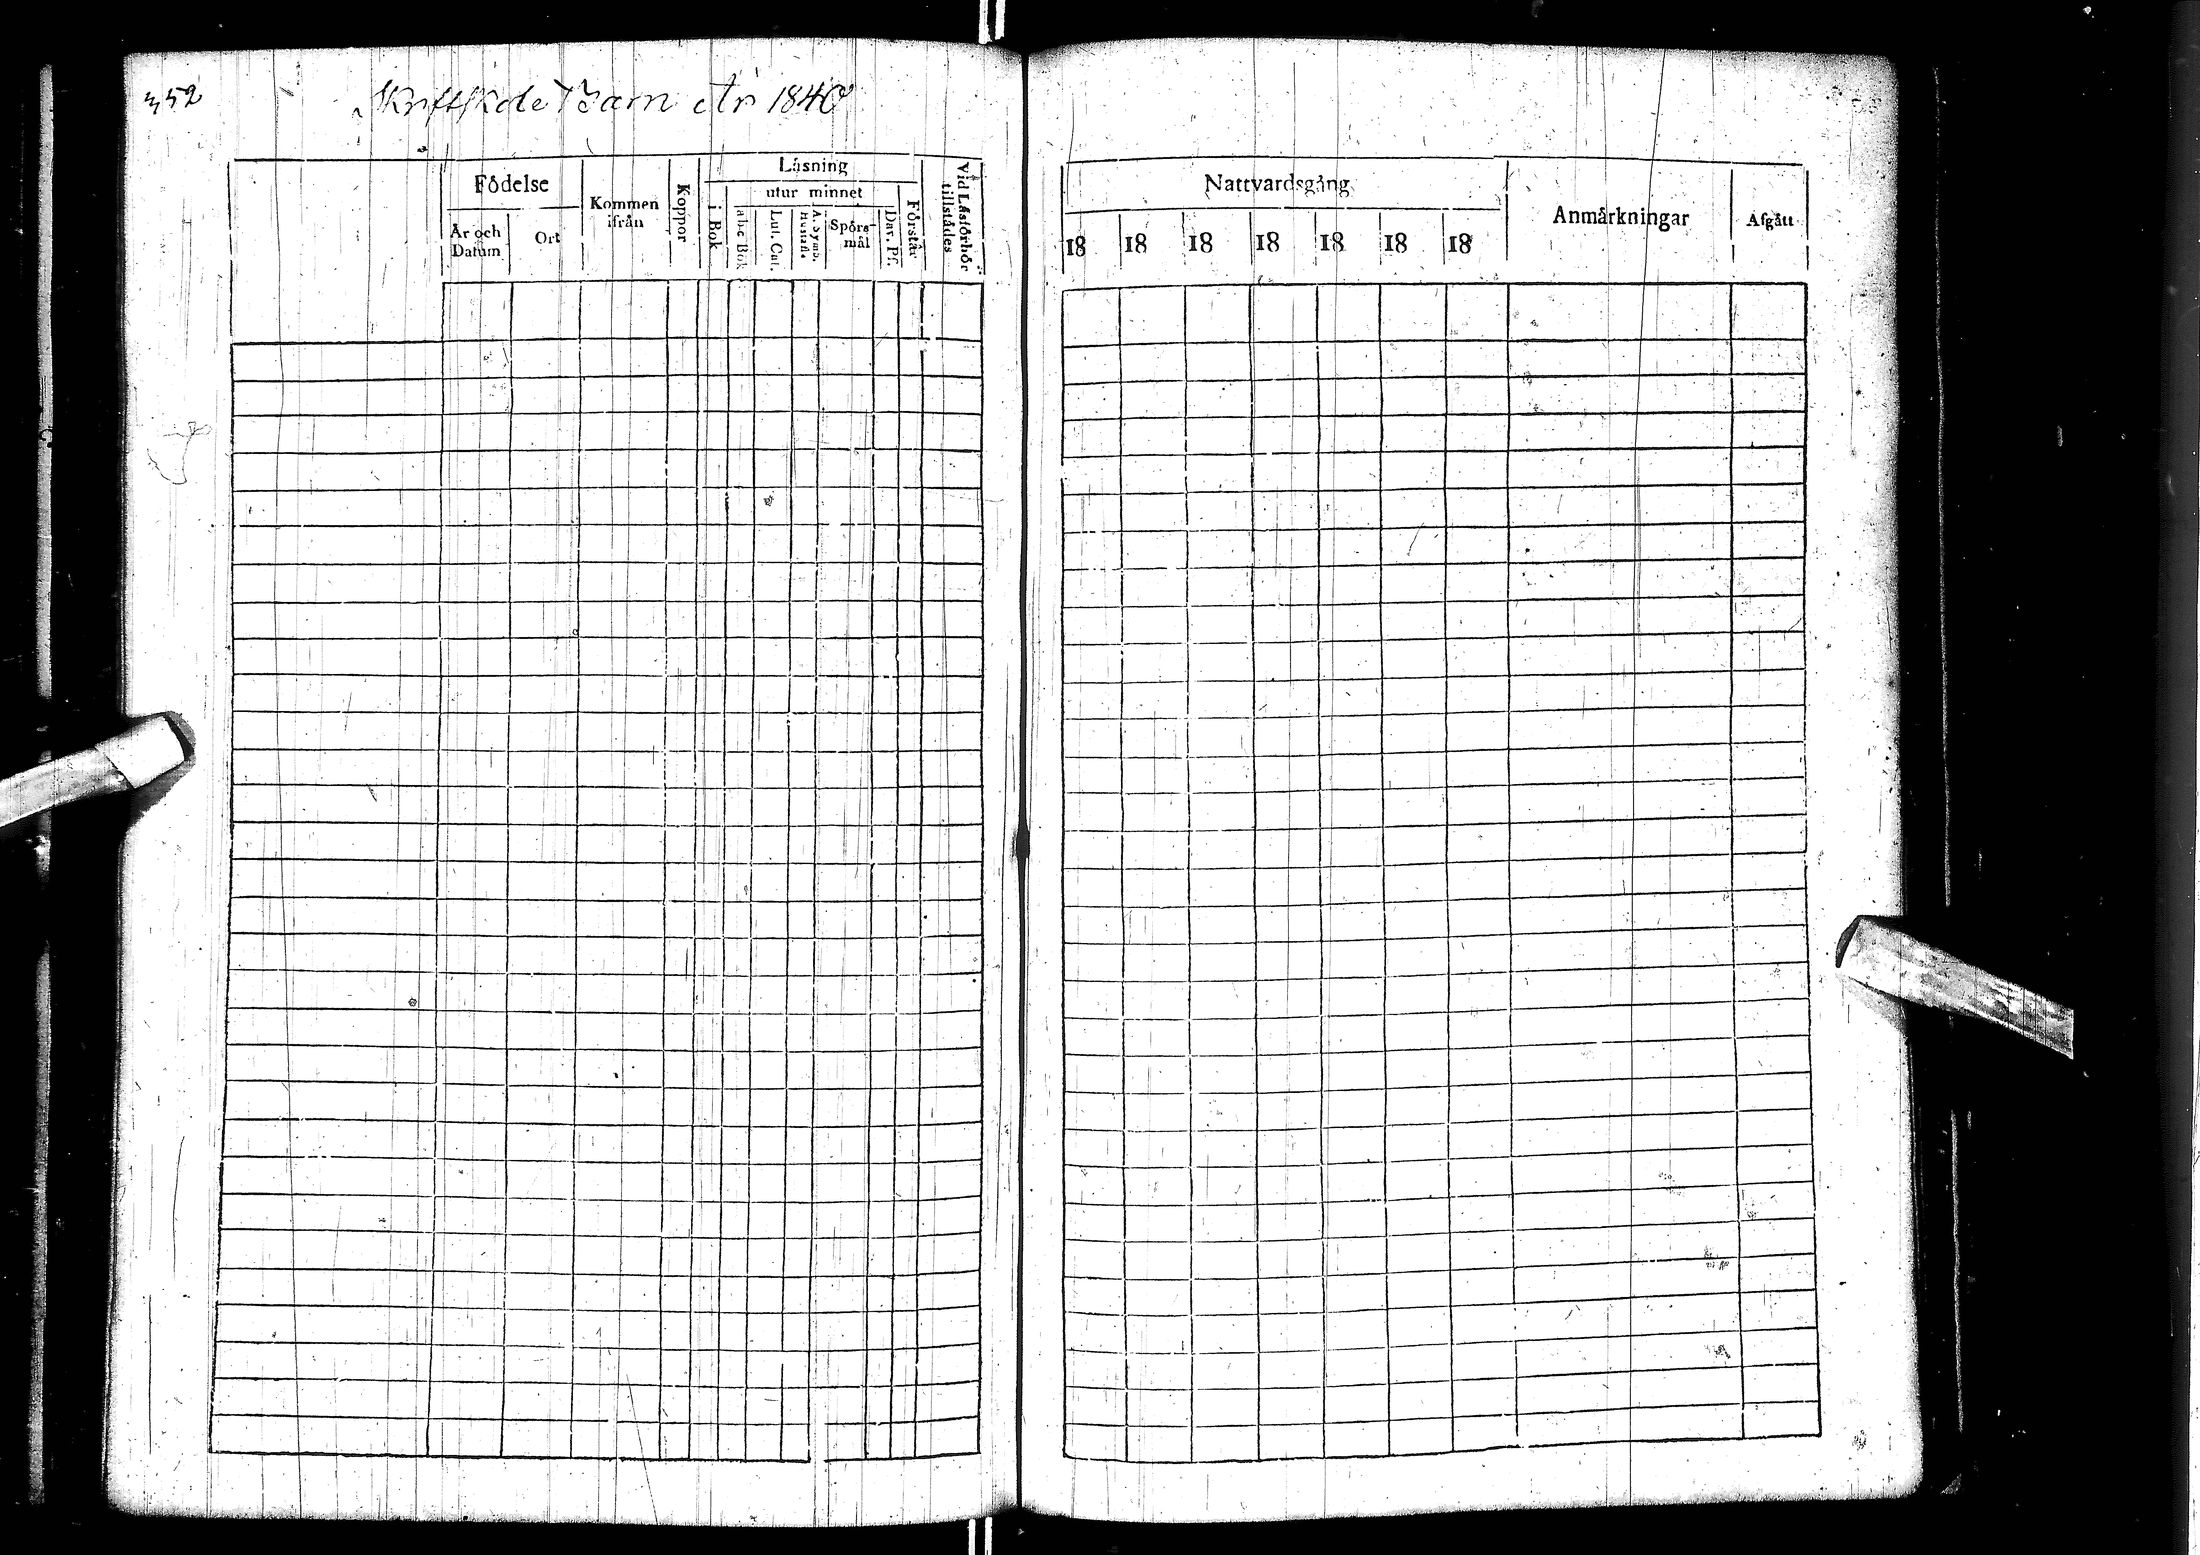 352
Skriftskole Barn År 1840
Födelse
År och Datum
Ort
Kommen ifrån
Koppor
Läsning
i Bok
utur minnet
abc Bok
Lut. Cat.
A. Symb. Hustafl.
Spörsmål
Dav. Ps.
Förstår
Vid Läsförhör tillstådes
Nattvardsgång
18 18 18 18 18 18 18
Anmärkningar
Afgått